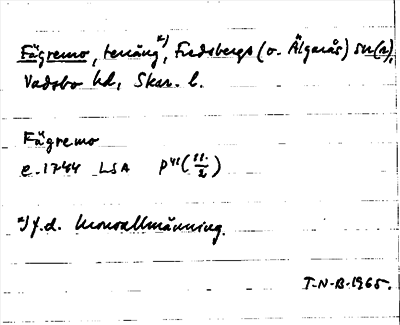 Fägremo, terräng x), Fredsbergs (o. Älgarås) sn(r),
Vadsbo hd, Skar. l.
Fägremo
e. 1744 LSA P41(11:2)
x) f.d. kronoallmänning.
T-N-B-1965.